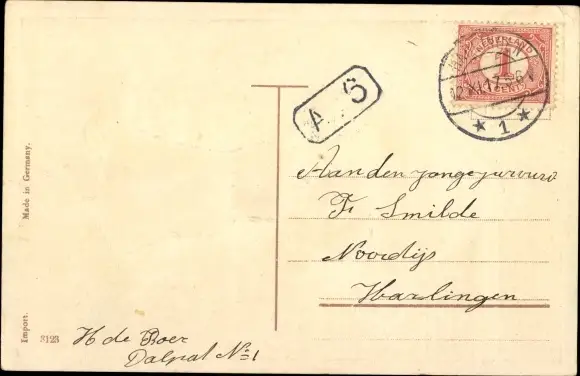 NEDERLAND
1
CENT
1
A S
Aan den
Fr Smilde
Noordijs
Harlingen
H de Boer
No 1
Made in Germany.
Import.
3123